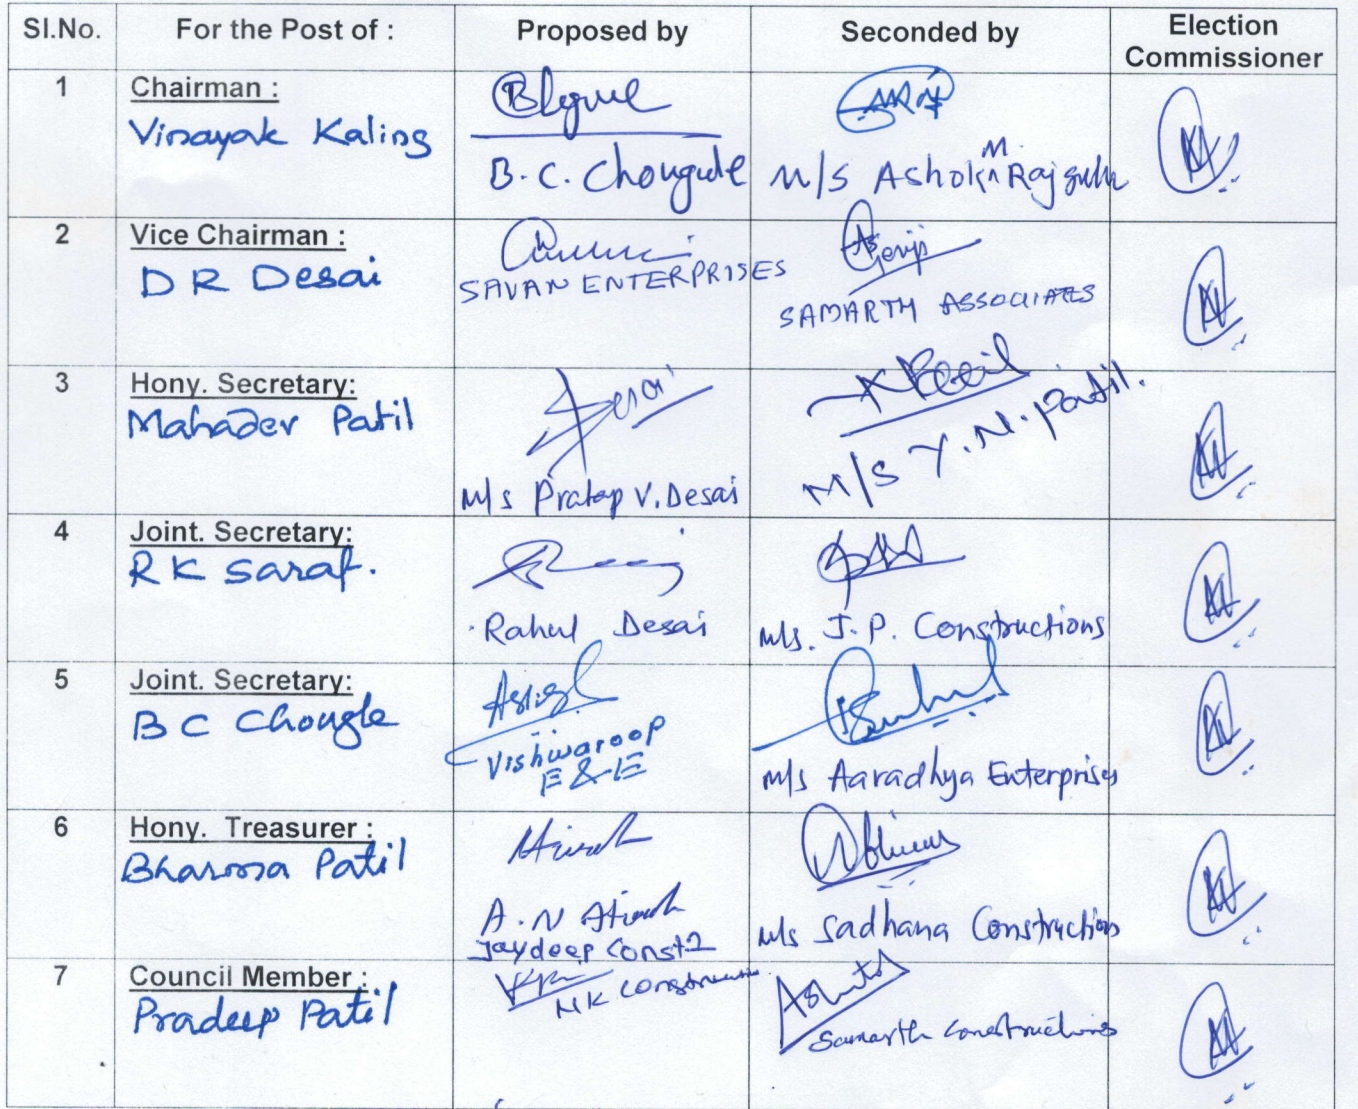 Sl.No. For the Post of : Proposed by Seconded by Election Commissioner
1 Chairman :
Vinayak Kaling
B. C. Chougule
M/s Ashok M. Rajguru
2 Vice Chairman :
D R Desai
SAVAN ENTERPRISES
SAMARTH ASSOCIATES
3 Hony. Secretary:
Mahadev Patil
Desai
M/s Pratap V. Desai
M/s Y. N. Patil.
4 Joint. Secretary:
R K Saraf.
Rahul Desai
M/s. J. P. Constructions
5 Joint. Secretary:
B C Chougle
Vishwaroop
E & E
M/s Aaradhya Enterprises
6 Hony. Treasurer :
Bharma Patil
A. N
Jaydeep Const
M/s Sadhana Construction
7 Council Member :
Pradeep Patil
NK Construction
Samarth Constructions